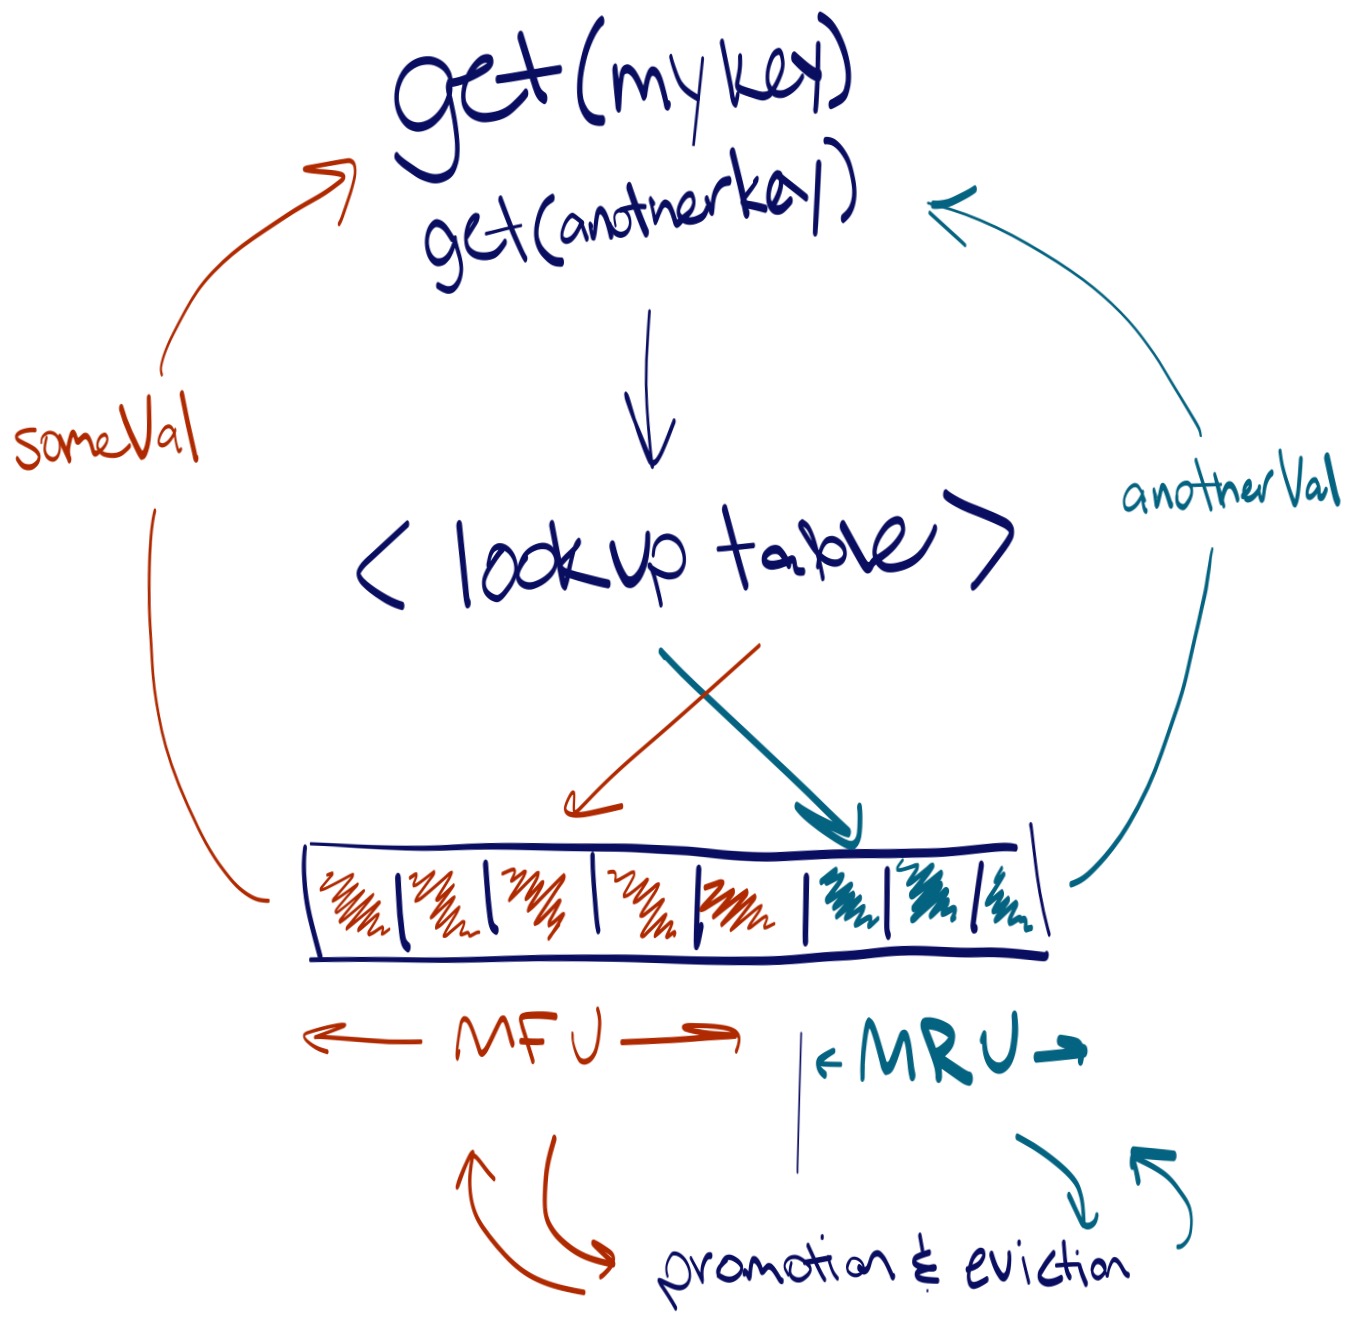 get(mykey)
get(anotherkey)
someVal
anotherVal
< lookup table >
MFU
MRU
promotion & eviction